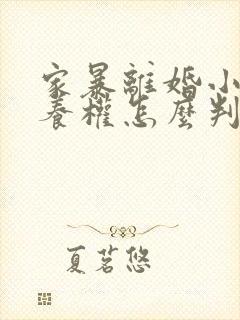 家暴離婚小
養權怎麼判
夏茗悠